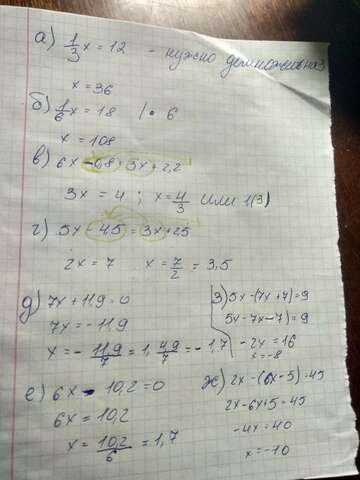 а) 1/3 x = 12 - нужно домножить на 3
x = 36
б) 1/6 x = 18 | • 6
x = 108
в) 6x - 0,8 = 3x + 2,2
3x = 4 ; x = 4/3 или 1(3)
г) 5x - 4,5 = 3x + 2,5
2x = 7 x = 7/2 = 3,5
д) 7x + 11,9 = 0
7x = -11,9
x = - 11,9/7 = 1, 4,9/7 = -1,7
е) 6x - 10,2 = 0
6x = 10,2
x = 10,2/6 = 1,7
з) 5x - (7x + 7) = 9
5x - 7x - 7) = 9
-2x = 16
x = -8
ж) 2x - (6x - 5) = 45
2x - 6x + 5 = 45
-4x = 40
x = -10